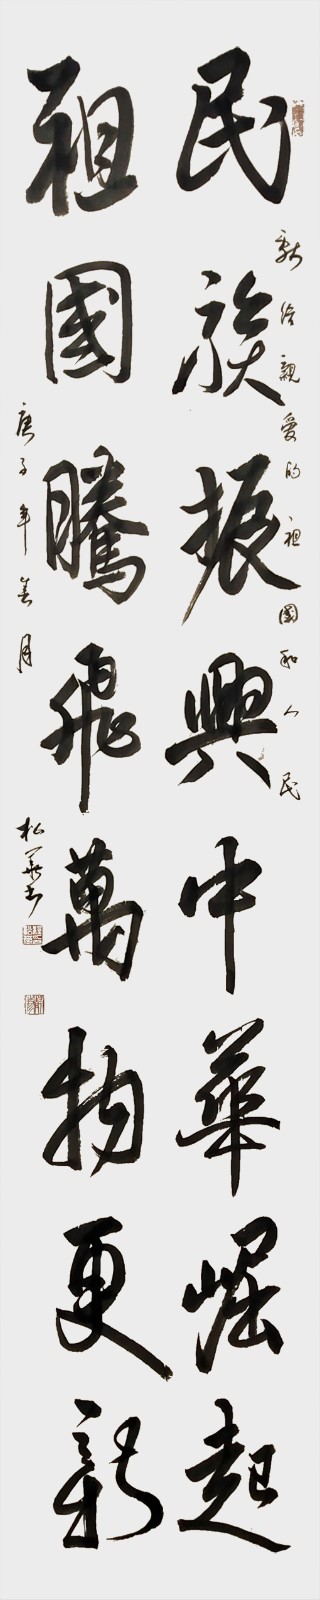 獻給親愛的祖國和人民
民族振興中華崛起
祖國騰飛萬物更新
庚子年善月
松華書